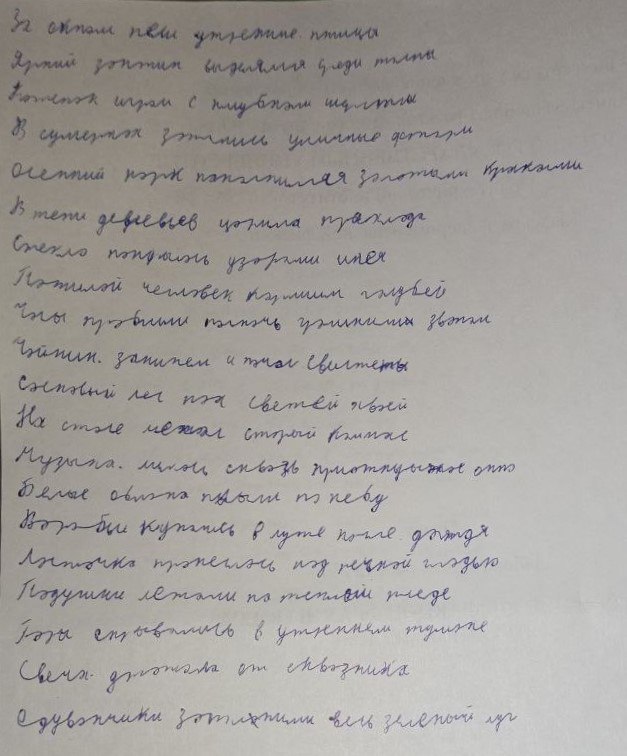 За окном пели утренние птицы
Яркий зонтик выделялся среди толпы
Котенок играл с клубком шерсти
В сумерках зажглись уличные фонари
Осенний парк наполнился золотыми красками
В тени деревьев царила прохлада
Стекло покрылось узорами инея
Пожилой человек кормил голубей
Часы пробили полночь громким звоном
Чайник закипел и начал свистеть
Сосновый лес пах свежей хвоей
На столе лежал старый компас
Музыка лилась сквозь приоткрытое окно
Белые облака плыли по небу
Воробьи купались в луже после дождя
Ласточка пронеслась над речной гладью
Подушки лежали на теплом пледе
Горы скрывались в утреннем тумане
Свеча дрожала от сквозняка
Одуванчики заполонили весь зеленый луг